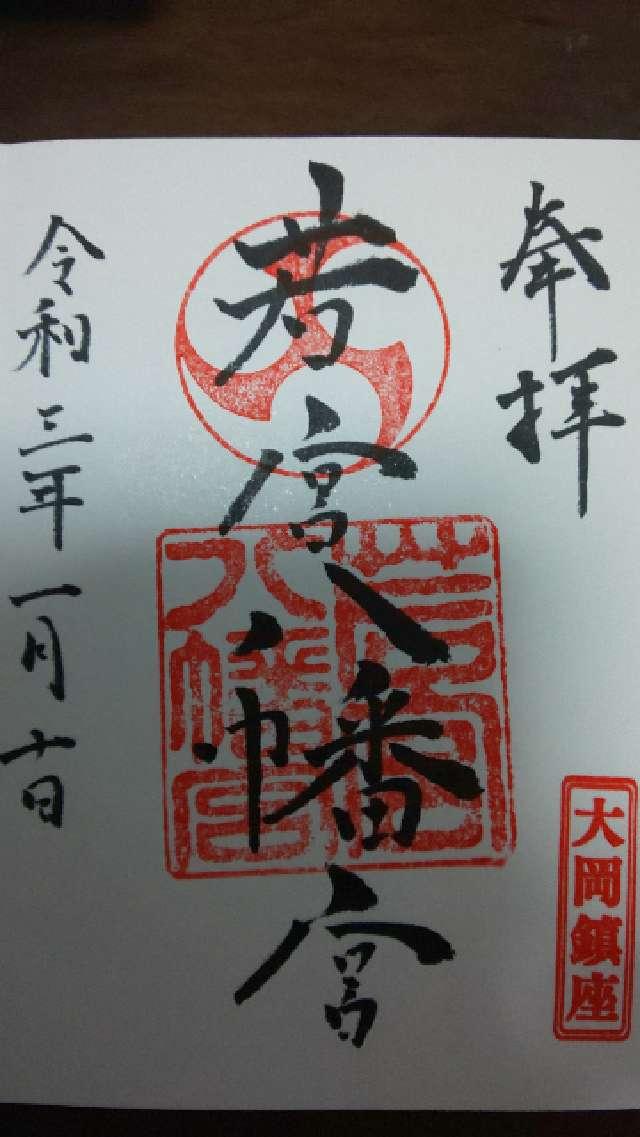 奉拝
大岡鎮座
若宮八幡宮
若宮
八幡宮
令和三年一月十日